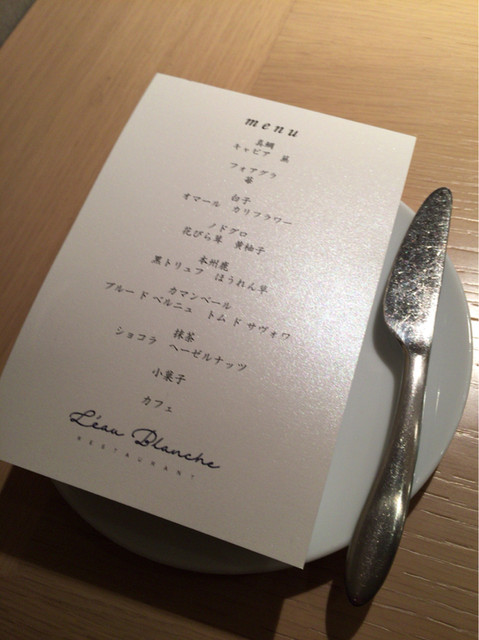 menu
真鯛
キャビア 蕪
フォアグラ
苺
白子
オマール カリフラワー
ノドグロ
花びら茸 黄柚子
本州鹿
黒トリュフ ほうれん草
カマンベール
ブルー ド ベルニュ トム ド サヴォワ
抹茶
ショコラ ヘーゼルナッツ
小菓子
カフェ
L'eau Blanche
RESTAURANT